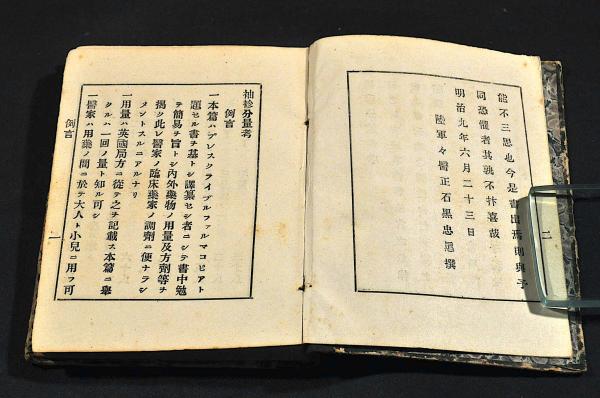 能不三思也今是書出焉則與予
同恐懼者其孰不抃喜哉
明治九年六月二十三日
陸軍々醫正石黒忠悳撰
二
袖珍分量考
例言
一本篇ハプレスクライブルファルマコピアト
題セル書ヲ基トシ譯纂セシ者ニシテ書中勉
テ簡易ヲ旨トシ内外藥物ノ用量及方劑等ヲ
掲ク此レ醫家ノ臨床藥家ノ調劑ニ便ナラシ
メントスルニアルナリ
一用量ハ英國局方ニ從テ之ヲ記載ス本篇ニ擧
クルハ一回ノ量ト知ル可シ
一醫家ハ用藥ノ間ニ於テ大人ト小兒ニ用フ可
例言
一